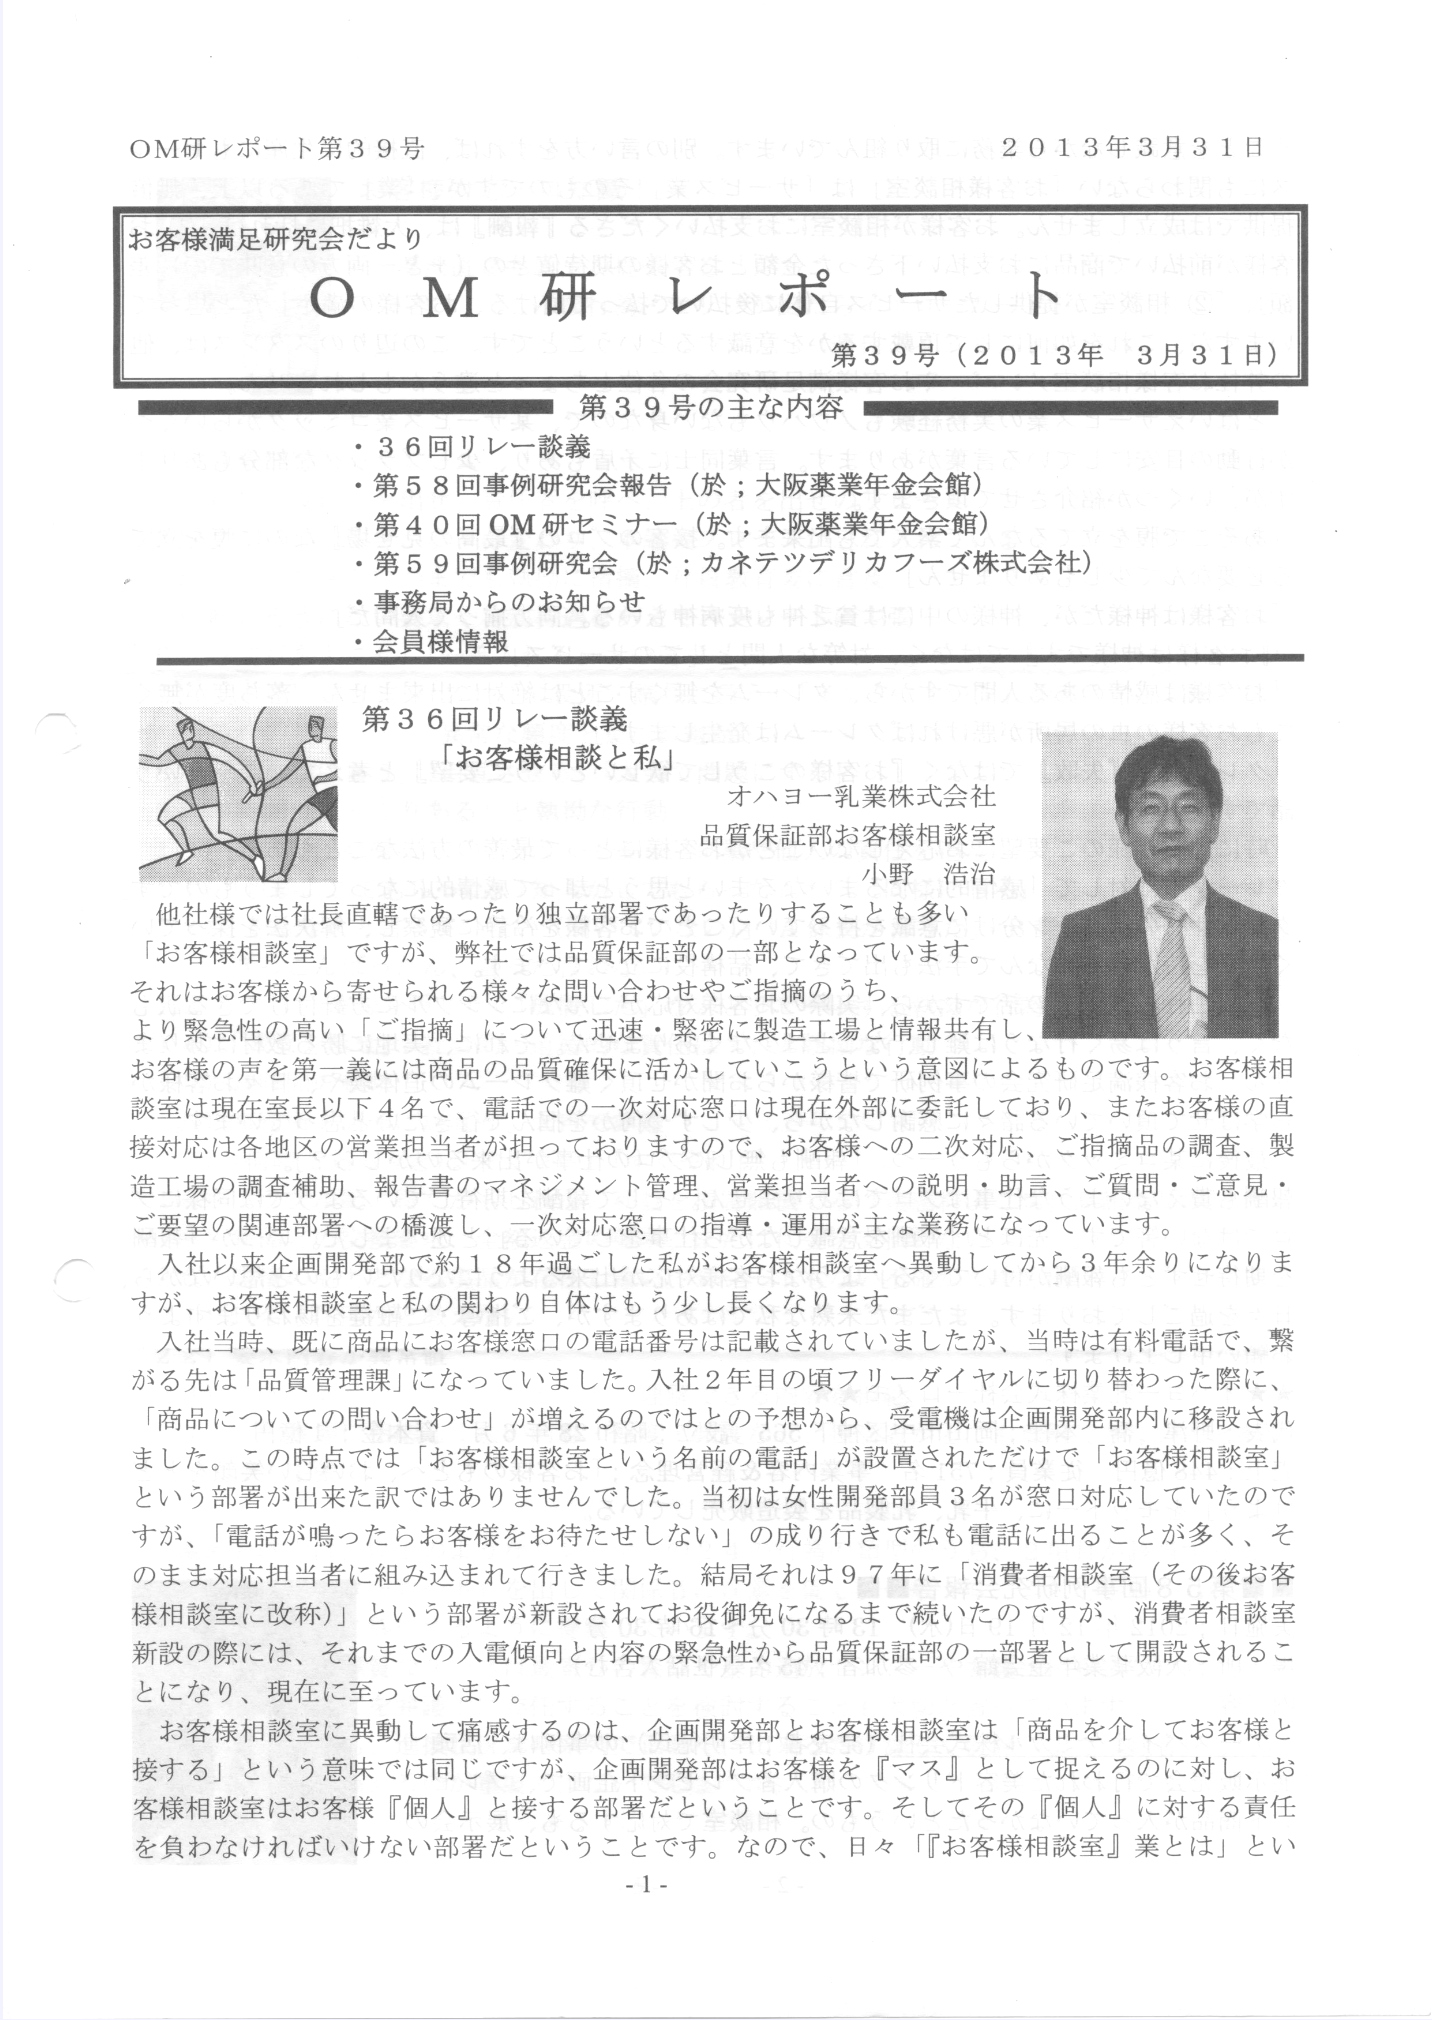 OM研レポート第39号　2013年3月31日
お客様満足研究会だより
OM研レポート
第39号(2013年　3月31日)
第39号の主な内容
・36回リレー談義
・第58回事例研究会報告(於;大阪薬業年金会館)
・第40回OM研セミナー(於;大阪薬業年金会館)
・第59回事例研究会(於;カネテツデリカフーズ株式会社)
・事務局からのお知らせ
・会員様情報
第36回リレー談義
「お客様相談と私」
オハヨー乳業株式会社
品質保証部お客様相談室
小野　浩治
他社様では社長直轄であったり独立部署であったりすることも多い
「お客様相談室」ですが、弊社では品質保証部の一部となっています。
それはお客様から寄せられる様々な問い合わせやご指摘のうち、
より緊急性の高い「ご指摘」について迅速・緊密に製造工場と情報共有し、
お客様の声を第一義には商品の品質確保に活かしていこうという意図によるものです。お客様相
談室は現在室長以下4名で、電話での一次対応窓口は現在外部に委託しており、またお客様の直
接対応は各地区の営業担当者が担っておりますので、お客様への二次対応、ご指摘品の調査、製
造工場の調査補助、報告書のマネジメント管理、営業担当者への説明・助言、ご質問・ご意見・
ご要望の関連部署への橋渡し、一次対応窓口の指導・運用が主な業務になっています。
入社以来企画開発部で約18年過ごした私がお客様相談室へ異動してから3年余りになりま
すが、お客様相談室と私の関わり自体はもう少し長くなります。
入社当時、既に商品にお客様窓口の電話番号は記載されていましたが、当時は有料電話で、繋
がる先は「品質管理課」になっていました。入社2年目の頃フリーダイヤルに切り替わった際に、
「商品についての問い合わせ」が増えるのではとの予想から、受電機は企画開発部内に移設され
ました。この時点では「お客様相談室という名前の電話」が設置されただけで「お客様相談室」
という部署が出来た訳ではありませんでした。当初は女性開発部員3名が窓口対応していたので
すが、「電話が鳴ったらお客様をお待たせしない」の成り行きで私も電話に出ることが多く、そ
のまま対応担当者に組み込まれて行きました。結局それは97年に「消費者相談室(その後お客
様相談室に改称)」という部署が新設されてお役御免になるまで続いたのですが、消費者相談室
新設の際には、それまでの入電傾向と内容の緊急性から品質保証部の一部署として開設されるこ
とになり、現在に至っています。
お客様相談室に異動して痛感するのは、企画開発部とお客様相談室は「商品を介してお客様と
接する」という意味では同じですが、企画開発部はお客様を『マス』として捉えるのに対し、お
客様相談室はお客様『個人』と接する部署だということです。そしてその『個人』に対する責任
を負わなければいけない部署だということです。なので、日々「『お客様相談室』業とは」とい
- 1 -